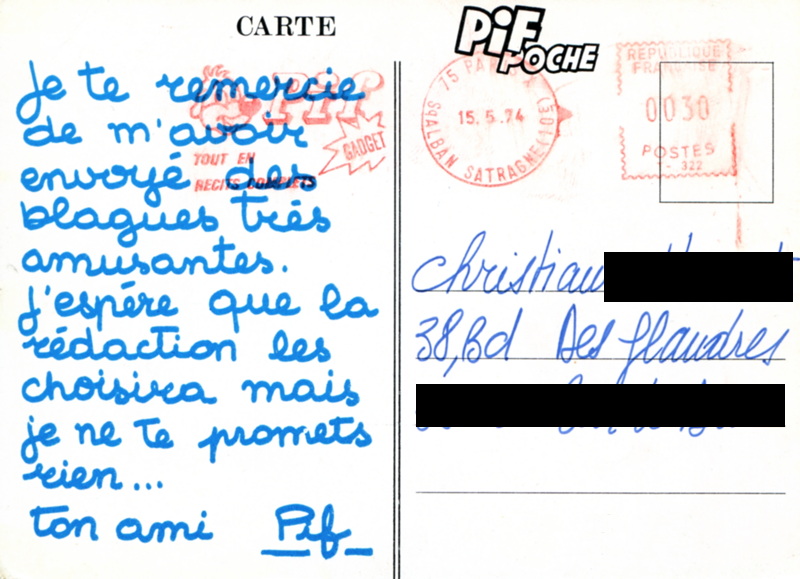 CARTE
PiF POCHE
Je te remercie
de m'avoir
envoyé des
blagues très
amusantes.
J'espère que la
rédaction les
choisira mais
je ne te promets
rien...
ton ami Pif
Pif
GADGET
TOUT EN
RECITS COMPLETS
75 PARIS
15.5.74
SqALBAN SATRAGNE (10e)
REPUBLIQUE
FRANCAISE
0030
POSTES
- 322
Christian
38, Bd Des Flandres